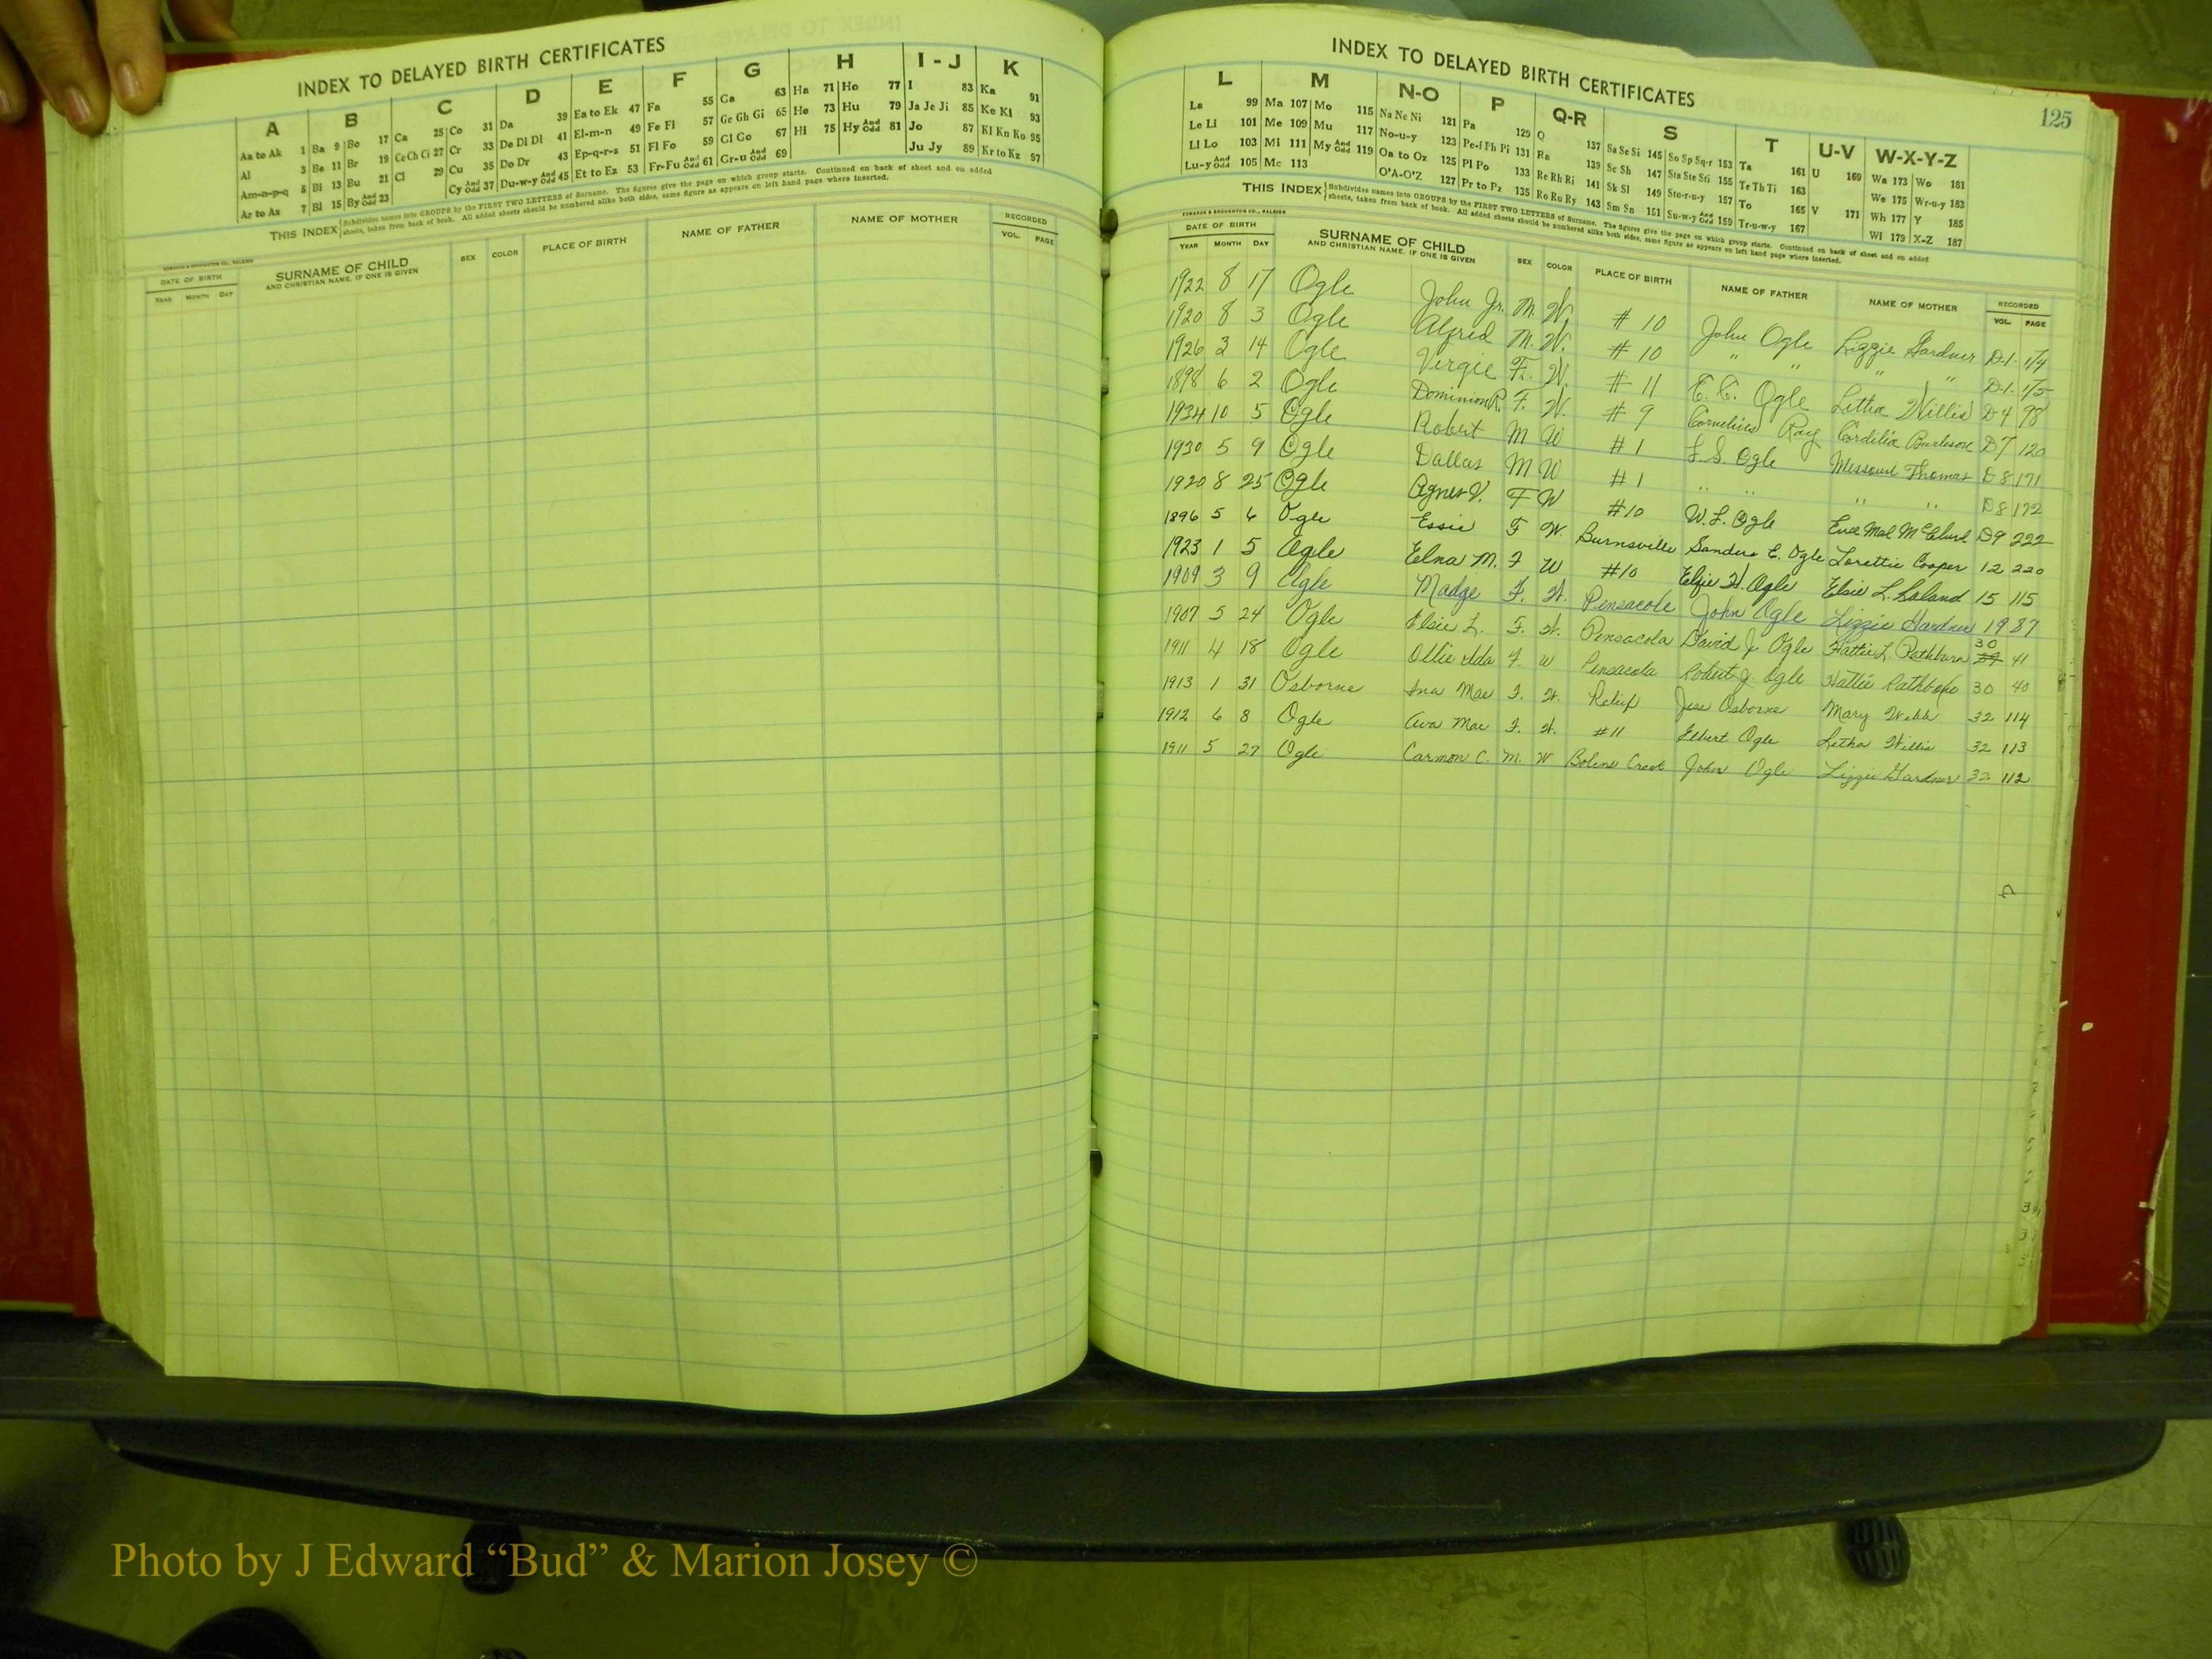 INDEX TO DELAYED BIRTH CERTIFICATES
A B C D E F G H I - J K
Aa to Ak 1 Ba 9 Bo 17 Ca 25 Co 31 Da 39 Ea to Ek 47 Fa 55 Ga 63 Ha 71 Ho 77 I 83 Ka 91
Al 3 Be 11 Br 19 Ce Ch Ci 27 Cr 33 De Di Dl 41 El-m-n 49 Fe Fi 57 Ge Gh Gi 65 He 73 Hu 79 Ja Je Ji 85 Ke Ki 93
Am-n-p-q 5 Bi 13 Bu 21 Cl 29 Cu 35 Do Dr 43 Ep-q-r-s 51 Fl Fo 59 Gl Go 67 Hi 75 Hy And Odd 81 Jo 87 Kl Kn Ko 95
Ar to Az 7 Bl 15 By And Odd 23 Cy And Odd 37 Du-w-y And Odd 45 Et to Ez 53 Fr-Fu And Odd 61 Gr-u And Odd 69 Ju Jy 89 Kr to Kz 97
THIS INDEX Subdivides names into GROUPS by the FIRST TWO LETTERS of Surname. The figures give the page on which group starts. Continued on back of sheet and on added
sheets, taken from back of book. All added sheets should be numbered alike both sides, same figure as appears on left hand page where inserted.
EDWARDS & BROUGHTON CO., RALEIGH
DATE OF BIRTH SURNAME OF CHILD SEX COLOR PLACE OF BIRTH NAME OF FATHER NAME OF MOTHER RECORDED
YEAR MONTH DAY AND CHRISTIAN NAME, IF ONE IS GIVEN VOL. PAGE
INDEX TO DELAYED BIRTH CERTIFICATES
125
L M N-O P Q-R S T U-V W-X-Y-Z
La 99 Ma 107 Mo 115 Na Ne Ni 121 Pa 129 Q 137 Sa Se Si 145 So Sp Sq-r 153 Ta 161 U 169 Wa 173 Wo 181
Le Li 101 Me 109 Mu 117 No-u-y 123 Pe-f Ph Pi 131 Ra 139 Sc Sh 147 Sta Ste Sti 155 Te Th Ti 163 We 175 Wr-u-y 183
Ll Lo 103 Mi 111 My And Odd 119 Oa to Oz 125 Pl Po 133 Re Rh Ri 141 Sk Sl 149 Sto-r-u-y 157 To 165 V 171 Wh 177 Y 185
Lu-y And Odd 105 Mc 113 O'A-O'Z 127 Pr to Pz 135 Ro Ru Ry 143 Sm Sn 151 Su-w-y And Odd 159 Tr-u-w-y 167 Wi 179 X-Z 187
THIS INDEX Subdivides names into GROUPS by the FIRST TWO LETTERS of Surname. The figures give the page on which group starts. Continued on back of sheet and on added
sheets, taken from back of book. All added sheets should be numbered alike both sides, same figure as appears on left hand page where inserted.
EDWARDS & BROUGHTON CO., RALEIGH
DATE OF BIRTH SURNAME OF CHILD SEX COLOR PLACE OF BIRTH NAME OF FATHER NAME OF MOTHER RECORDED
YEAR MONTH DAY AND CHRISTIAN NAME, IF ONE IS GIVEN VOL. PAGE
1922 8 17 Ogle John Jr. M. W. # 10 John Ogle Lizzie Gardner D-1- 174
1920 8 3 Ogle Alfred M. W. # 10 " " " " D-1- 175
1926 3 14 Ogle Virgie F. W. # 11 E. C. Ogle Litha Willis D 4 98
1898 6 2 Ogle Dominion R. F. W. # 9 Cornelius Ray Cordilia Burleson D7 120
1934 10 5 Ogle Robert M W # 1 F. S. Ogle Missouri Thomas D 8 171
1930 5 9 Ogle Dallas M W # 1 " " " " D 8 172
1920 8 25 Ogle Agnes V. F W #10 W. L. Ogle D9 222
1896 5 6 Ogle Essie F W. Burnsville Sanders E. Ogle Lorettie Cooper 12 220
1923 1 5 Ogle Elna M. F W #10 Elzie H. Ogle Elsie L. 15 115
1909 3 9 Ogle Madge F. W. Pensacola John Ogle Lizzie Gardner 19 87
1907 5 24 Ogle Elsie L. F. W. Pensacola David J. Ogle Hattie L. Rathburn 30 41
1911 4 18 Ogle Ollie Ida F. W Pensacola Robert J. Ogle Hattie Rathbone 30 40
1913 1 31 Osborne Ina Mae F. W. Relief Jess Osborne Mary Webb 32 114
1912 6 8 Ogle Ava Mae F. W. #11 Elbert Ogle Letha Willis 32 113
1911 5 27 Ogle Carmon C. M. W Bolens Creek John Ogle Lizzie Gardner 32 112
Photo by J Edward “Bud” & Marion Josey ©